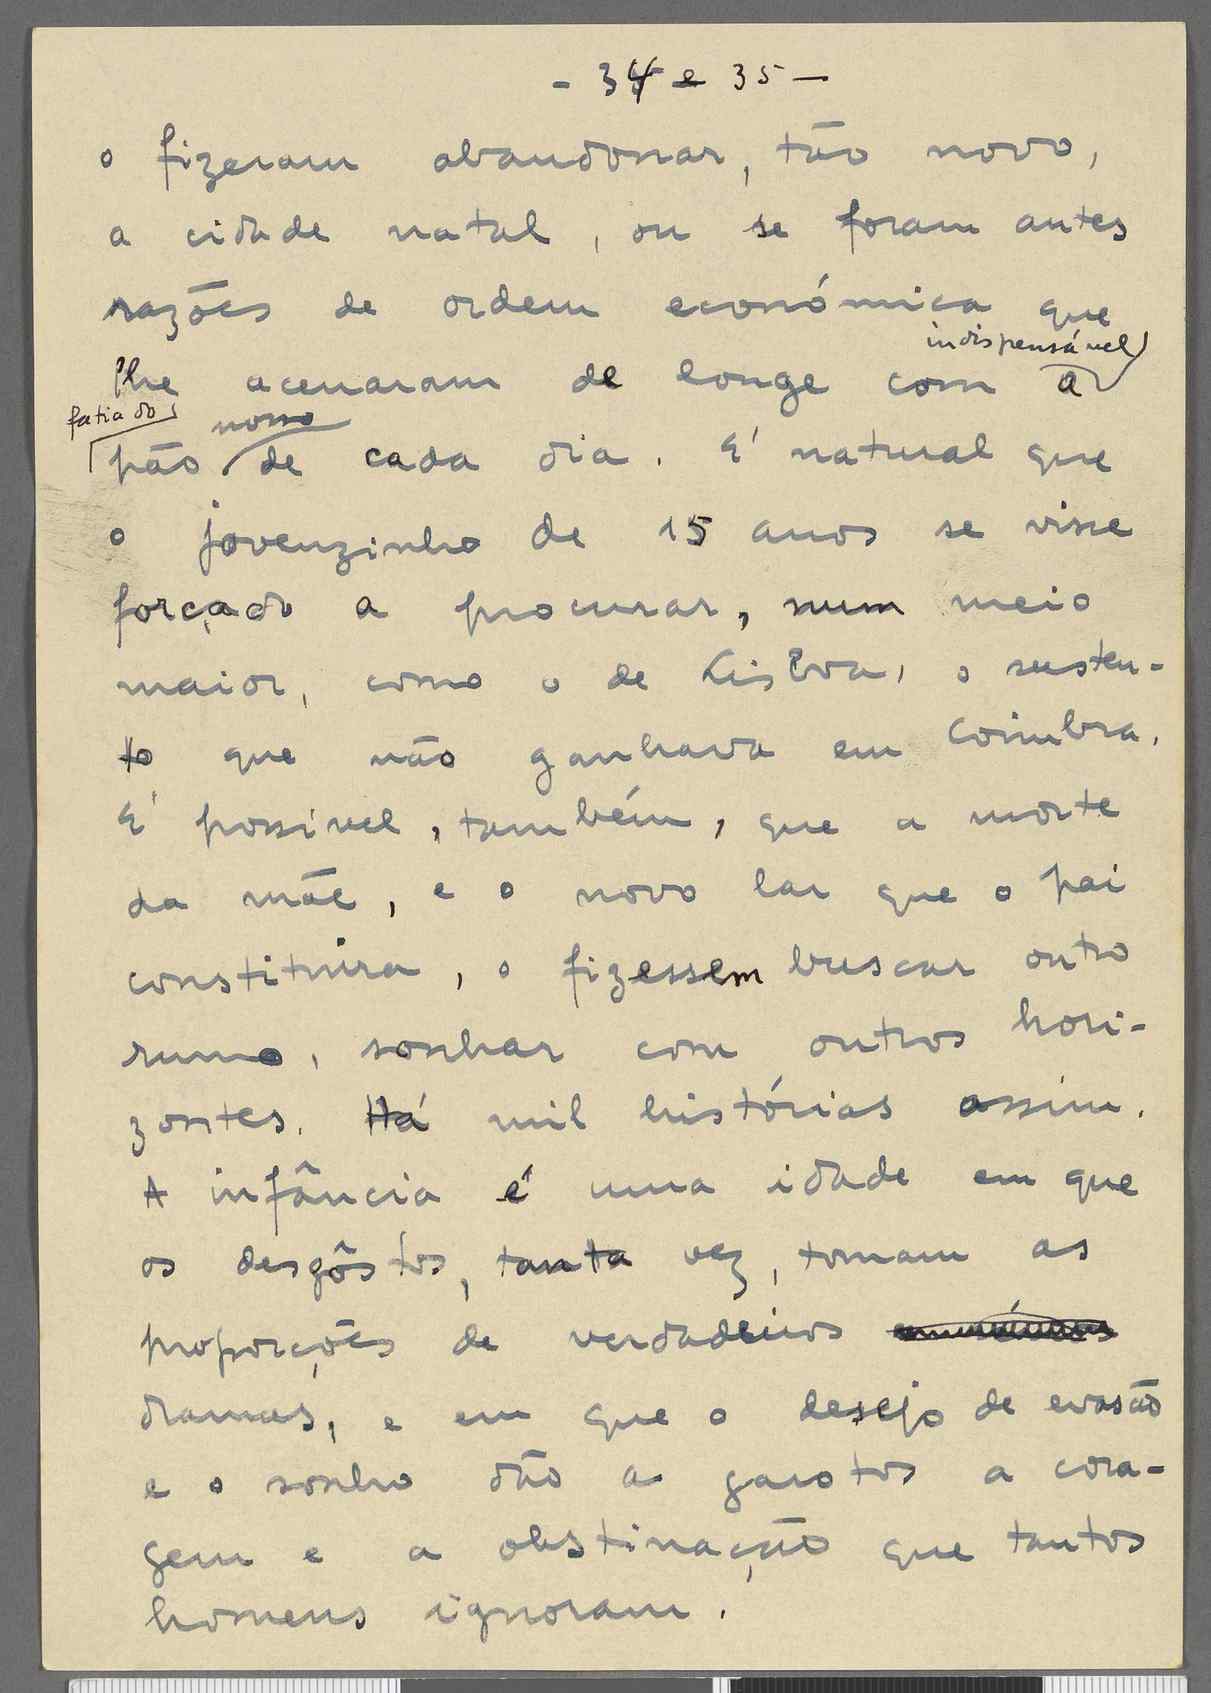 - 34 e 35 -
o fizeram abandonar, tão novo,
a cidade natal, ou se foram antes
razões de ordem económica que
indispensável
lhe acenaram de longe com a
fatia do nosso
pão de cada dia. É natural que
o jovenzinho de 15 anos se visse
forçado a procurar, num meio
maior, como o de Lisboa, o susten-
to que não ganhava em Coimbra.
É possível, também, que a morte
da mãe, e o novo lar que o pai
constituira, o fizessem buscar outro
rumo, sonhar com outros hori-
zontes. Há mil histórias assim.
A infância é uma idade em que
os desgôstos, tanta vez, tomam as
proporções de verdadeiros
dramas, e em que o desejo de evasão
e o sonho dão a garotos a cora-
gem e a obstinação que tantos
homens ignoram.